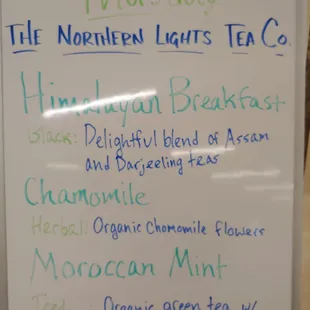 THE NORTHERN LIGHTS TEA CO.
Himalayan Breakfast
Black: Delightful blend of Assam
and Darjeeling teas
Chamomile
Herbal: Organic Chamomile flowers
Moroccan Mint
Iced Organic green tea w/